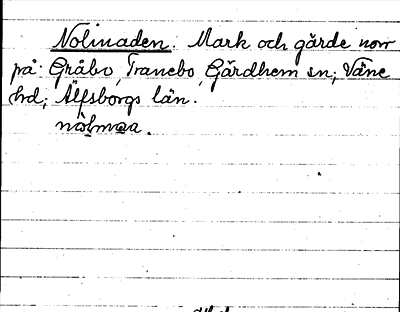 Nolmaden. Mark och gärde norr
på Gråbo, Tranebo, Gärdhem sn; Väne
hd; Älfsborgs län.
nòlmaa.